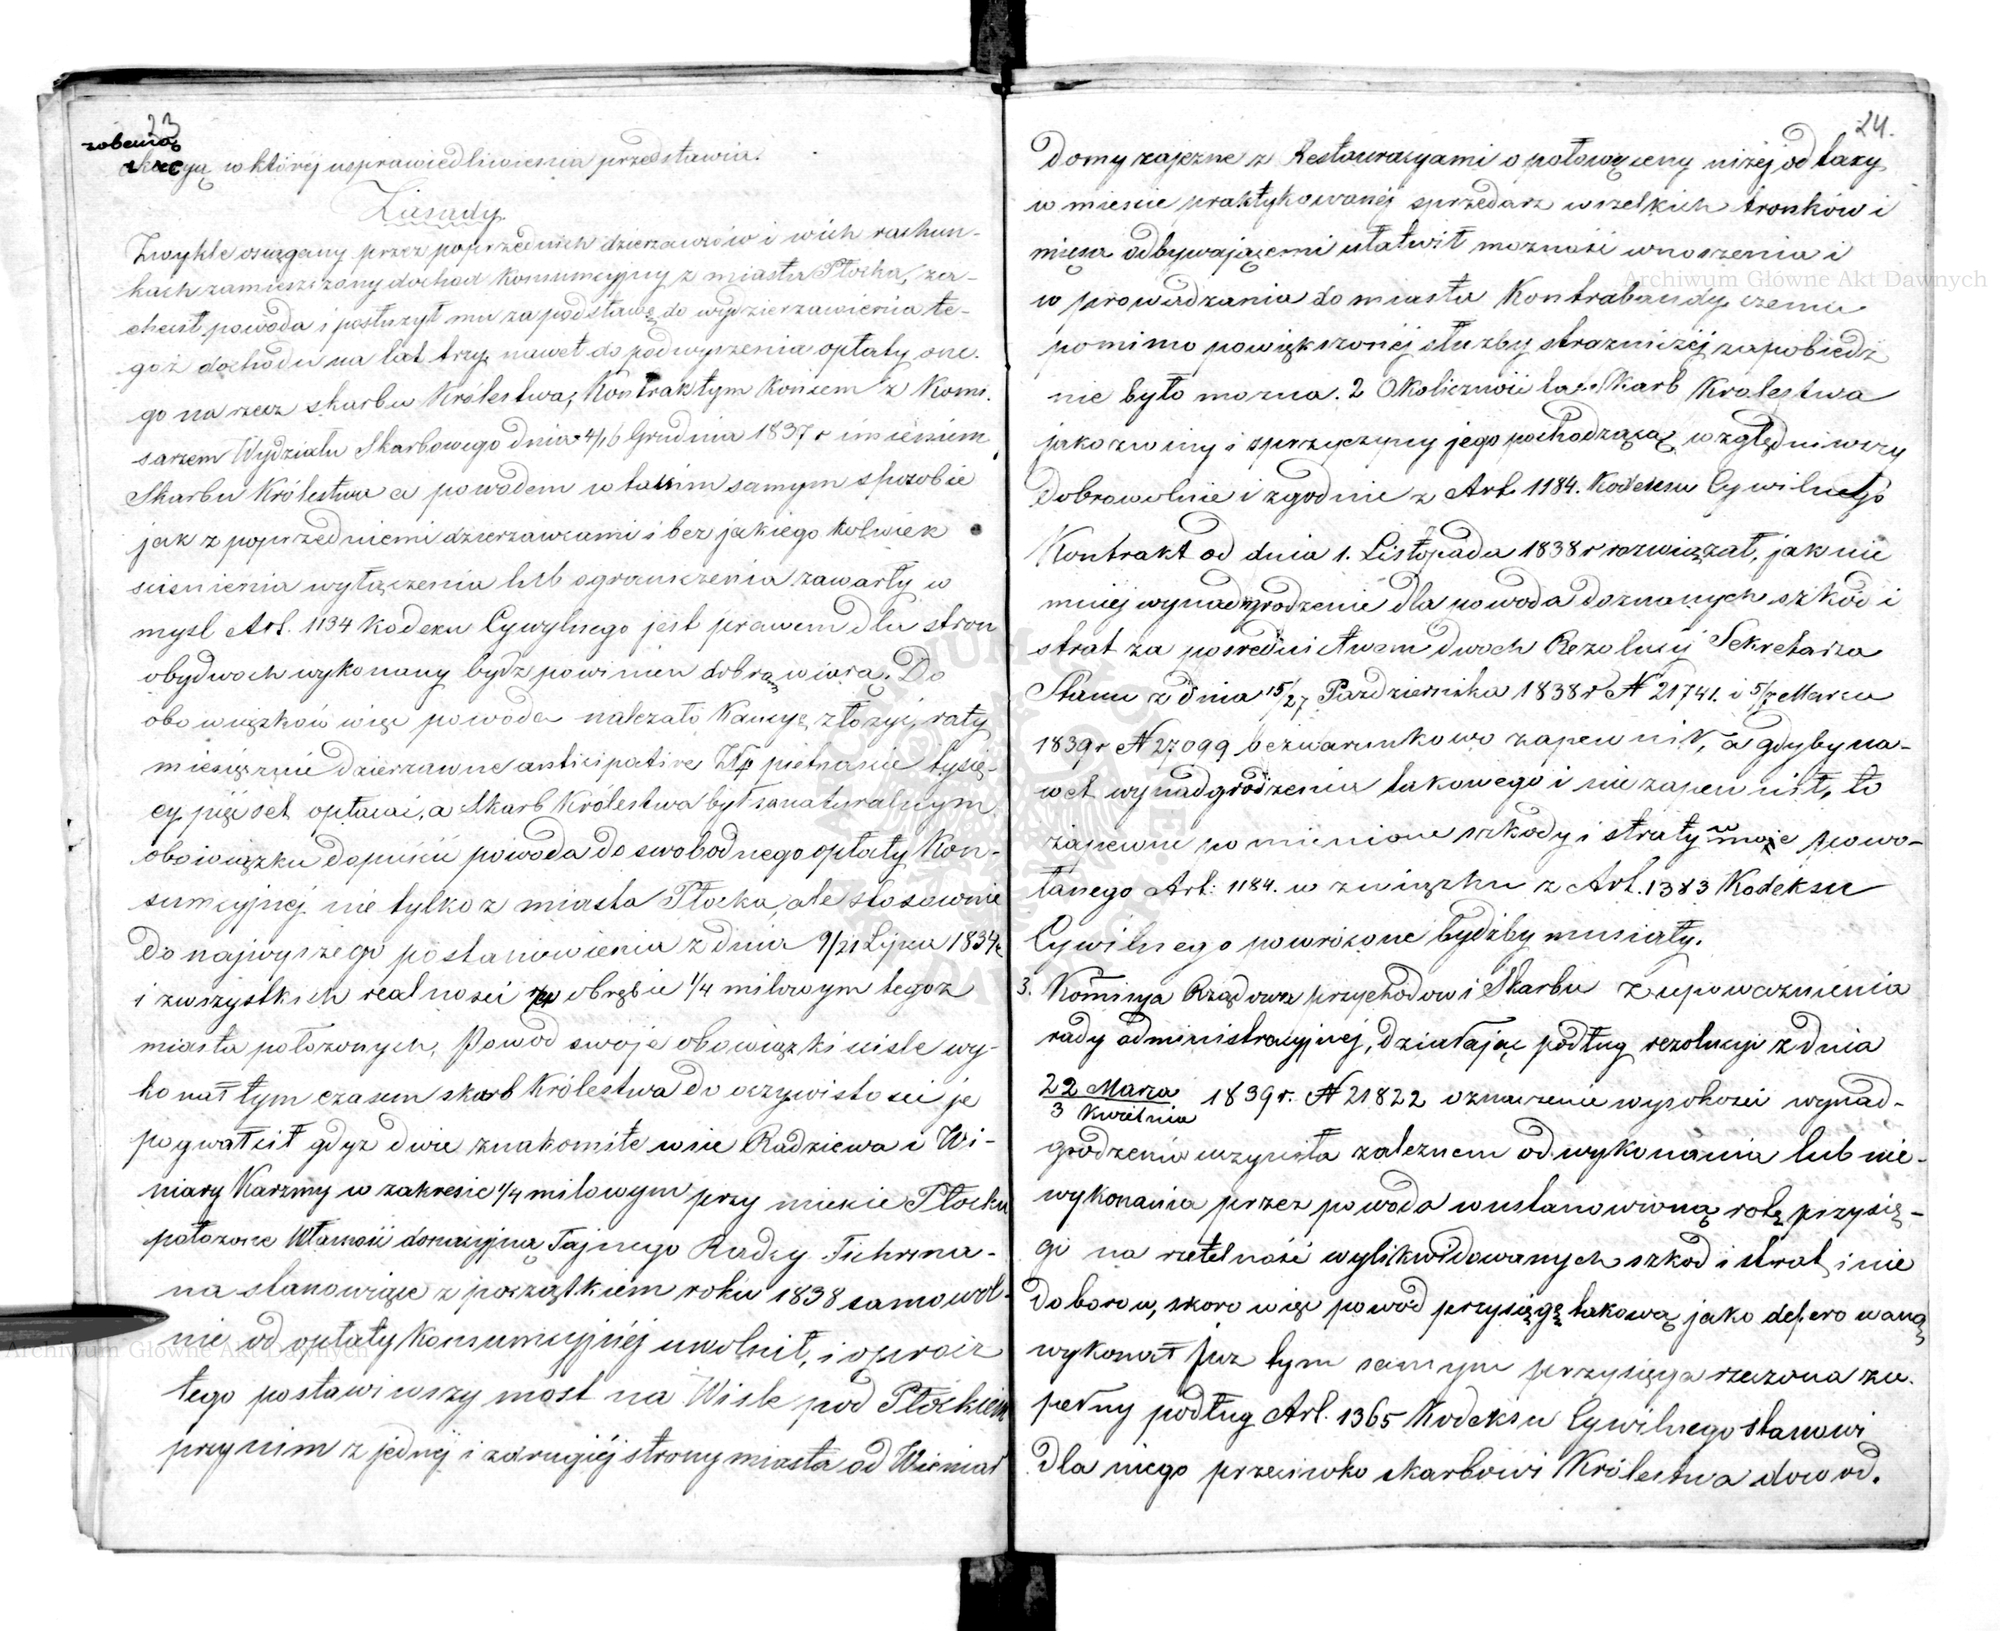 23
skargą w której usprawiedliwienia przedstawia.
Zasady.
Zwykle osiągany przez poprzednich dzierzawców i w ich rachun-
kach zamieszczony dochód Konsumcyjny z miasta Płocka, za-
chęcił powoda i posłużył mu za podstawę do wydzierzawienia te-
goż dochodu na lat trzy nawet do podwyszenia opłaty one-
go na rzecz skarbu Królestwa; Kontrakt tym końcem z Komi-
sarzem Wydziału Skarbowego dnia 4/16 Grudnia 1837 r imieniem
Skarbu Królestwa a powodem w takim samym sposobie
jak z poprzedniemi dzierzawcami i bez jakiego kolwiek
ścieśnienia wyłączenia lub ograniczenia zawarty w
mysl Art. 1134 Kodexu Cywylnego jest prawem dla stron
obydwoch wykonany bydz powinien dobrą wiarą. Do
obowiązków więc powoda należało Kaucyę złożyć, raty
miesięcznie dzierzawne anticipative Złp piętnaście tysię-
cy pięćset opłacać, a Skarb Królestwa był w naturalnym
obowiązku dopuścić powoda do swobodnego opłaty Kon-
sumcyjnej nie tylko z miasta Płocka, ale stosownie
do najwyższego postanowienia z dnia 9/21 Lipca 1834 r
i z wszystkich realności w obrębie 1/4 milowym tegoż
miasta położonych, Powod swoje obowiązki ściśle wy-
konał tym czasem skarb Królestwa do oczywistości je
pogwałcił gdyż dwie znakomite wsie Radziewa i Wi-
niary Karzmy w zakresie 1/4 milowym przy mieście Płocku
położone Własność donacyjną Tajnego Radzy Fichsma-
na stanowiące z początkiem roku 1838 samowol-
nie od opłaty Konsumcyjnéj uwolnił, i oprocz
tego postawiwszy móst na Wiśle pod Płockiem
przy nim z jednéj i zdrugiéj strony miasta od Winiar
24.
domy zajezne z Restauracyami o połowę ceny niżéj od taxy
w mieście praktykowanéj sprzedarz wszelkich tronków i
mięsa odbywającemi ułatwił możność wnoszenia i
wprowadzania do miasta Kontrabandy czemu
pomimo powiększonéj służby strażniczéj zapobiedz
nie było można. 2 Okoliczność tę Skarb Krolestwa
jako z winy i z przyczyny jego pochodzącą względniwszy
dobrowolnie i zgodnie z Art. 1184. Kodexu Cywilnego
Kontrakt od dnia 1. Listopada 1838 r rozwiązał, jak nie
mniéj wynadgrodzenie dla powoda doznanych szkód i
strat za pośrednictwem dwoch Rezolucij Sekretarza
Stanu z dnia 15/27 Pazdziernika 1838 r N 21741. i 5/7 Marca
1839 r N 27099 bezwarunkowo zapewnił, a gdyby na-
wet wynadgrodzenia takowego i nie zapewnił, to
zapewne pomienione szkody i straty w moje powo-
łanego Art: 1184. w związku z Art. 1383 Kodeksu
Cywilnego powrócone bydźby musiały.
3. Komisya Rządowa przychodów i Skarbu z upoważnienia
rady administracyjnej, działając podług rezolucyi z dnia
22 Marca
3 Kwietnia 1839 r. N 21822 oznaczenie wysokości wynad-
grodzenia uczyniła zależnem od wykonania lub nie-
wykonania przez powoda w ustanowioną rotę przysię-
gi na rzetelność wylikwidowanych szkod i strat i nie
doborow, skoro więc powód przysięgę takową jako deferowaną
wykonał już tym samym przysięga rzeczona zu-
pełny podług Art. 1365 Kodeksu Cywilnego stanowi
dla niego przeciwko skarbowi Królestwa dowod.